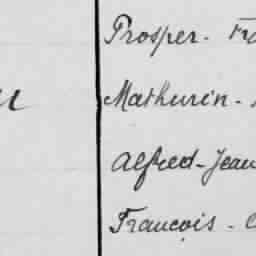 Prosper - Fra
Mathurin -
Alfred - Jean
François - C